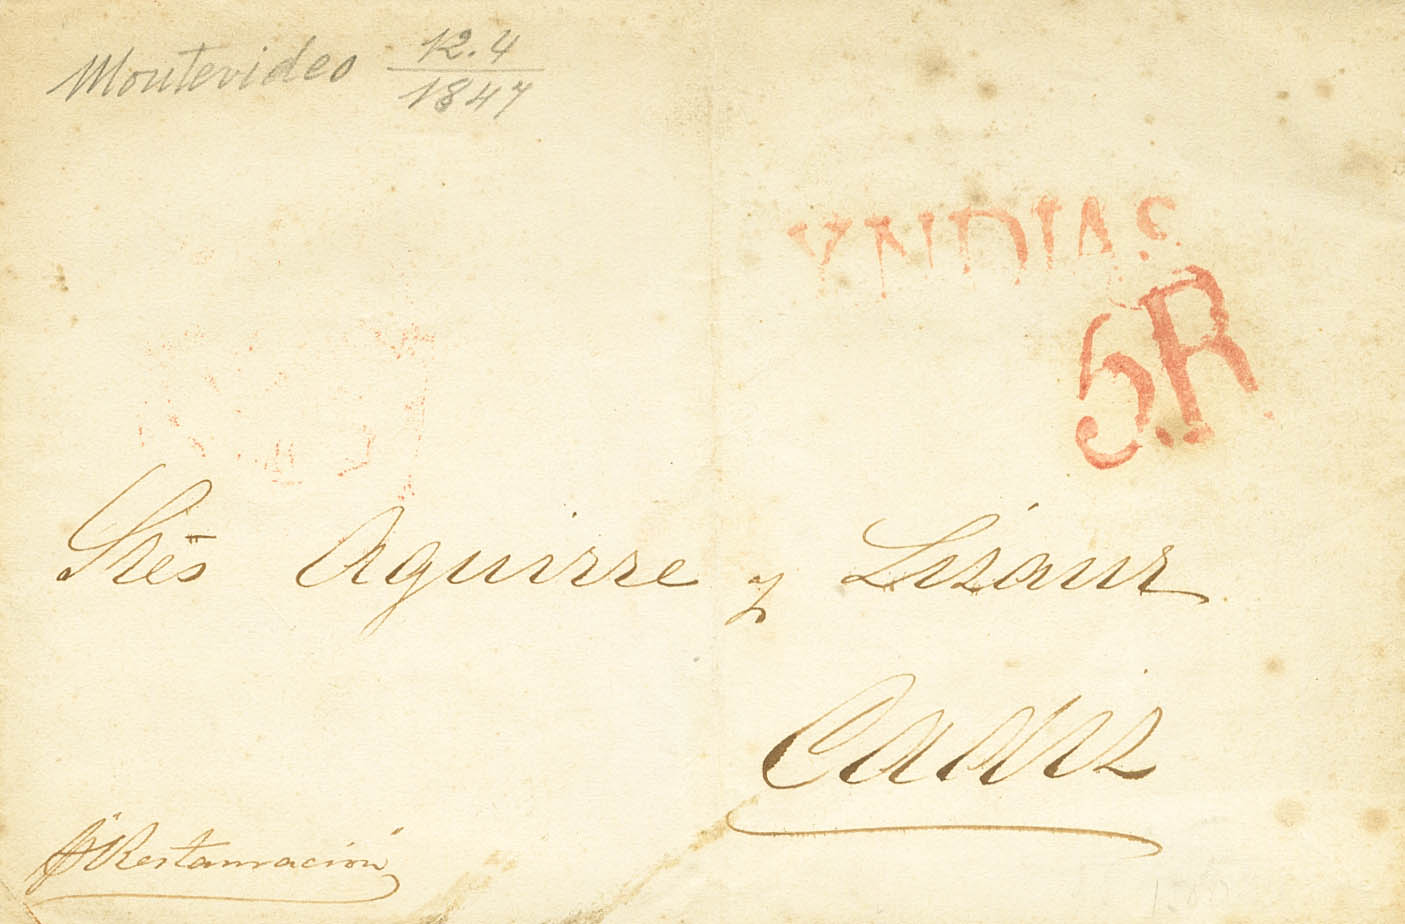 Montevideo 12.4
1847
YNDIAS
5R
Sres Aguirre y Lizaur
Cadiz
"Restauración"